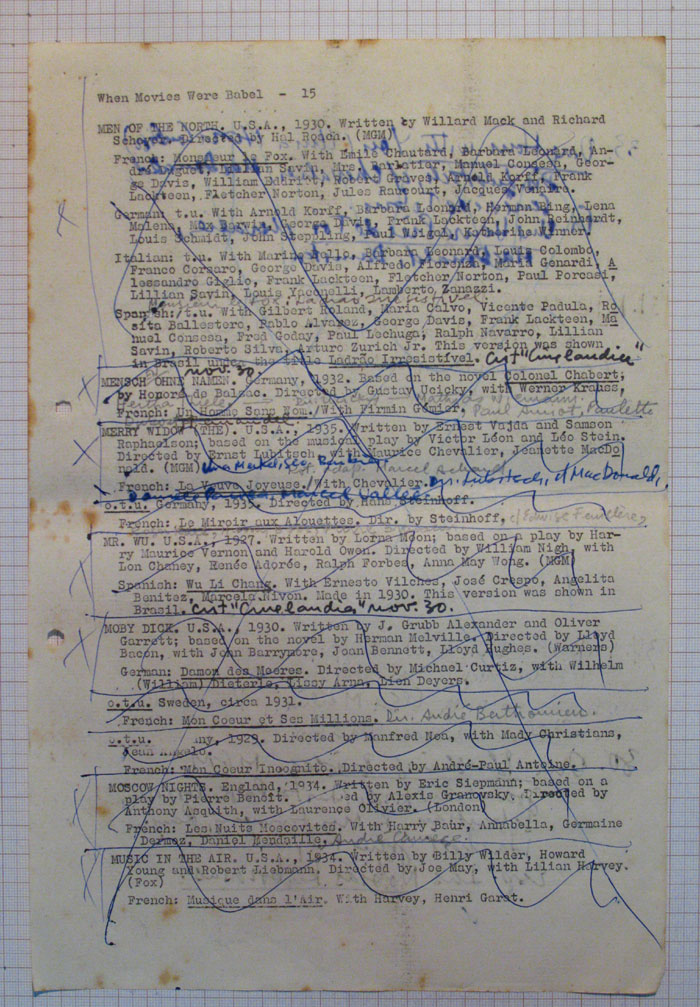 When Movies Were Babel - 15
MEN OF THE NORTH. U.S.A., 1930. Written by Willard Mack and Richard
Schayer. Directed by Hal Roach. (MGM)
French: Monsieur le Fox. With Emile Chautard, Barbara Leonard, An-
Lillian Savin, Mrs. Manuel Conesa, Geor-
ge Davis, William Robert Graves, Arnold Korff, Frank
Lackteen, Fletcher Norton, Jules Raucourt, Jacques
German: t.u. With Arnold Korff, Barbara Leonard, Herman Bing, Lena
Malena, George Davis, Frank Lackteen, John Reinhardt,
Louis Schmidt, John Steppling, Paul Weigel, Katherine
Italian: t.u. With Barbara Leonard, Louis Colombo,
Franco Corsaro, George Davis, Alfredo Maria Genardi, A
lessandro Giglio, Frank Lackteen, Fletcher Norton, Paul Porcasi,
Lillian Savin, Louis Yaconelli, Lamberto Zanazzi.
Spanish: t.u. With Gilbert Roland, Maria Calvo, Vicente Padula, Ro
sita Ballestero, Pablo Alvarez, George Davis, Frank Lackteen, Ma
nuel Conesa, Fred Goday, Paul Lechuga, Ralph Navarro, Lillian
Savin, Roberto Silva, Arturo Zurich Jr. This version was shown
in Brasil under the title Ladrão Irresistivel. Cist "Cinelandia"
nov. 30.
MENSCH OHNE NAMEN. Germany, 1932. Based on the novel Colonel Chabert;
by Honoré de Balzac. Directed by Gustav Ucicky, with Werner Krauss,
French: Un Homme Sans Nom./With Firmin Gémier,
MERRY WIDOW (THE). U.S.A., 1935. Written by Ernest Vajda and Samson
Raphaelson; based on the musical play by Victor Léon and Léo Stein.
Directed by Ernst Lubitsch, with Maurice Chevalier, Jeanette MacDo
nald. (MGM)
French: La Veuve Joyeuse./With Chevalier. Dir. Lubitsch, c/ MacDonald,
Marcel Vallée.
o.t.u. Germany, 1935. Directed by Hans Steinhoff.
French: Le Miroir aux Alouettes. Dir. by Steinhoff, c/ Edwige Feuillère
MR. WU. U.S.A., 1927. Written by Lorna Moon; based on a play by Har-
ry Maurice Vernon and Harold Owen. Directed by William Nigh, with
Lon Chaney, Renée Adorée, Ralph Forbes, Anna May Wong. (MGM)
Spanish: Wu Li Chang. With Ernesto Vilches, José Crespo, Angelita
Benitez, Marcela Nivon. Made in 1930. This version was shown in
Brasil. Cist "Cinelandia" nov. 30.
MOBY DICK. U.S.A., 1930. Written by J. Grubb Alexander and Oliver
Garrett; based on the novel by Herman Melville. Directed by Lloyd
Bacon, with John Barrymore, Joan Bennett, Lloyd Hughes. (Warners)
German: Damon des Meeres. Directed by Michael Curtiz, with Wilhelm
(William) Dieterle, Lissy Arna, Lien Deyers.
o.t.u. Sweden, circa 1931.
French: Mon Coeur et Ses Millions. Dir. André Berthomieu.
o.t.u. ny, 1929. Directed by Manfred Noa, with Mady Christians,
Jean Angelo.
French: Mon Coeur Incognito. Directed by André-Paul Antoine.
MOSCOW NIGHTS. England, 1934. Written by Eric Siepmann; based on a
play by Pierre Benoit. ed by Alexis Granovsky. Directed by
Anthony Asquith, with Laurence Olivier. (London)
French: Les Nuits Moscovites. With Harry Baur, Annabella, Germaine
Dermoz, Daniel Mendaille,
MUSIC IN THE AIR. U.S.A., 1934. Written by Billy Wilder, Howard
Young and Robert Liebmann. Directed by Joe May, with Lilian Harvey.
(Fox)
French: Musique dans l'Air. With Harvey, Henri Garat.